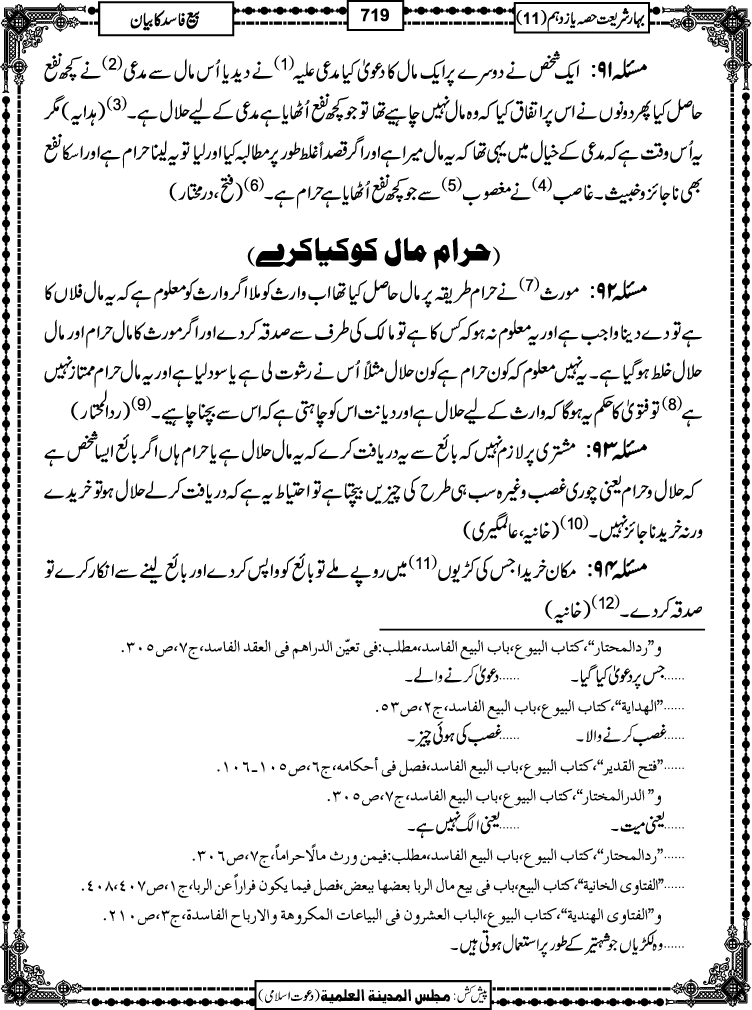 بہارِ شریعت حصہ یازدہم (11)
719
بیع فاسد کا بیان
مسئلہ ۹۱: ایک شخص نے دوسرے پر ایک مال کا دعویٰ کیا مدعی علیہ (1) نے دیدیا اُس مال سے مدعی (2) نے کچھ نفع
حاصل کیا پھر دونوں نے اس پر اتفاق کیا کہ وہ مال نہیں چاہیے تھا تو جو کچھ نفع اُٹھایا ہے مدعی کے لیے حلال ہے۔ (3) (ہدایہ) مگر
یہ اُس وقت ہے کہ مدعی کے خیال میں یہی تھا کہ یہ مال میرا ہے اور اگر قصداً غلط طور پر مطالبہ کیا اور لیا تو یہ لینا حرام ہے اور اسکا نفع
بھی ناجائز و خبیث۔ غاصب (4) نے مغصوب (5) سے جو کچھ نفع اُٹھایا ہے حرام ہے۔ (6) (فتح، درمختار)
(حرام مال کو کیا کرے)
مسئلہ ۹۲: مورث (7) نے حرام طریقہ پر مال حاصل کیا تھا اب وارث کو ملا اگر وارث کو معلوم ہے کہ یہ مال فلاں کا
ہے تو دے دینا واجب ہے اور یہ معلوم نہ ہو کہ کس کا ہے تو مالک کی طرف سے صدقہ کردے اور اگر مورث کا مال حرام اور مال
حلال خلط ہو گیا ہے۔ یہ نہیں معلوم کہ کون حرام ہے کون حلال مثلاً اُس نے رشوت لی ہے یا سود لیا ہے اور یہ مال حرام ممتاز نہیں
ہے (8) تو فتویٰ کا حکم یہ ہوگا کہ وارث کے لیے حلال ہے اور دیانت اس کو چاہتی ہے کہ اس سے بچنا چاہیے۔ (9) (ردالمحتار)
مسئلہ ۹۳: مشتری پر لازم نہیں کہ بائع سے یہ دریافت کرے کہ یہ مال حلال ہے یا حرام ہاں اگر بائع ایسا شخص ہے
کہ حلال و حرام یعنی چوری غصب وغیرہ سب ہی طرح کی چیزیں بیچتا ہے تو احتیاط یہ ہے کہ دریافت کرلے حلال ہو تو خریدے
ورنہ خریدنا جائز نہیں۔ (10) (خانیہ، عالمگیری)
مسئلہ ۹۴: مکان خریدا جس کی کڑیوں (11) میں روپے ملے تو بائع کو واپس کردے اور بائع لینے سے انکار کرے تو
صدقہ کردے۔ (12) (خانیہ)
و”ردالمحتار“، کتاب البیوع، باب البیع الفاسد، مطلب: فی تعیّن الدراھم فی العقد الفاسد، ج۷، ص۳۰۵.
......جس پر دعویٰ کیا گیا۔ ......دعویٰ کرنے والے۔
......”الھدایة“، کتاب البیوع، باب البیع الفاسد، ج۲، ص۵۳.
......غصب کرنے والا۔ ......غصب کی ہوئی چیز۔
......”فتح القدیر“، کتاب البیوع، باب البیع الفاسد، فصل فی أحکامه، ج۶، ص۱۰۵-۱۰۶.
و” الدرالمختار“، کتاب البیوع، باب البیع الفاسد، ج۷، ص۳۰۵.
......یعنی میت۔ ......یعنی الگ نہیں ہے۔
......”ردالمحتار“، کتاب البیوع، باب البیع الفاسد، مطلب: فیمن ورث مالًا حراماً، ج۷، ص۳۰۶.
......”الفتاوی الخانیة“، کتاب البیع، باب فی بیع مال الربا بعضھا ببعض، فصل فیما یکون فراراً عن الربا، ج۱، ص۴۰۷، ۴۰۸.
و”الفتاوی الھندیة“، کتاب البیوع، الباب العشرون فی البیاعات المکروھة والارباح الفاسدة، ج۳، ص۲۱۰.
......وہ لکڑیاں جو شہتیر کے طور پر استعمال ہوتی ہیں۔
پیش کش: مجلس المدینة العلمیة (دعوتِ اسلامی)